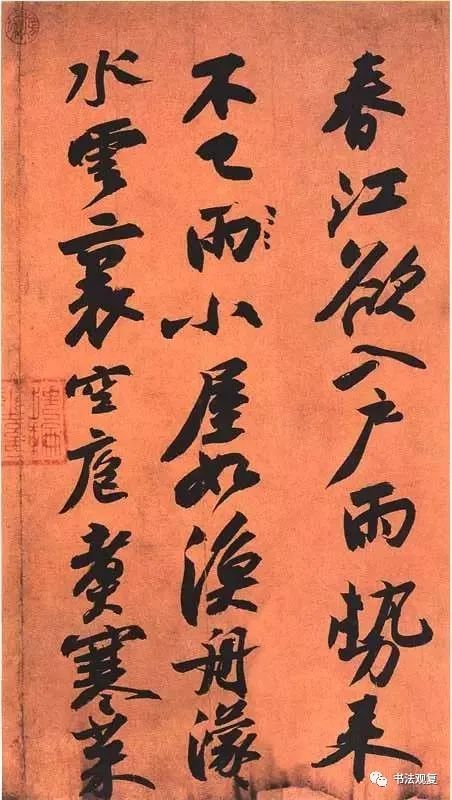 春江欲入户雨勢来
不已雨小屋如漁舟濛〻
水雲裏空庖煑寒菜
书法观复